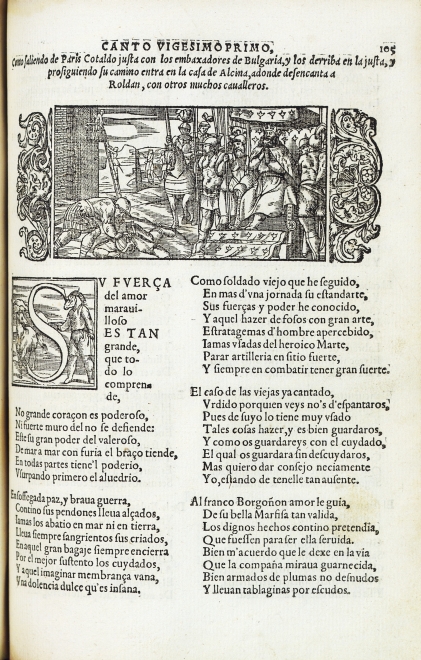 CANTO VIGESIMOPRIMO, 105
Como saliendo de Paris Cotaldo justa con los embaxadores de Bulgaria, y los derriba en la justa, y
prosiguiendo su camino entra en la casa de Alcina, adonde desencanta a
Roldan, con otros muchos caualleros.
SV FVERÇA
del amor
maraui-
lloso
ES TAN
grande,
que to-
do lo
compren-
de,
No grande coraçon es poderoso,
Ni fuerte muro del no se defiende:
Este su gran poder del valeroso,
De mar a mar con furia el braço tiende,
En todas partes tiene'l poderio,
Vsurpando primero el aluedrio.
En sossegada paz, y braua guerra,
Contino sus pendones lleua alçados,
Iamas los abatio en mar ni en tierra,
Lleua siempre sangrientos sus criados,
En aquel gran bagaje siempre encierra
Por el mejor sustento los cuydados,
Y aquel imaginar membrança vana,
Vna dolencia dulce qu'es insana.
Como soldado viejo que he seguido,
En mas d'vna jornada su estandarte,
Sus fuerças y poder he conocido,
Y aquel hazer de fosos con gran arte,
Estratagemas d'hombre apercebido,
Iamas vsadas del heroico Marte,
Parar artilleria en sitio fuerte,
Y siempre en combatir tener gran suerte.
El caso de las viejas ya cantado,
Vrdido porquien veys no's d'espantaros,
Pues de suyo lo tiene muy vsado
Tales cosas hazer, y es bien guardaros,
Y como os guardareys con el cuydado,
El qual os guardara sin descuydaros,
Mas quiero dar consejo neciamente
Yo, estando de tenelle tan ausente.
Al franco Borgoñon amor le guia,
De su bella Marfisa tan valida,
Los dignos hechos contino pretendia,
Que fuessen para ser ella seruida.
Bien m'acuerdo que le dexe en la via
Que la compaña miraua guarnecida,
Bien armados de plumas no desnudos
Y lleuan tablaginas por escudos.